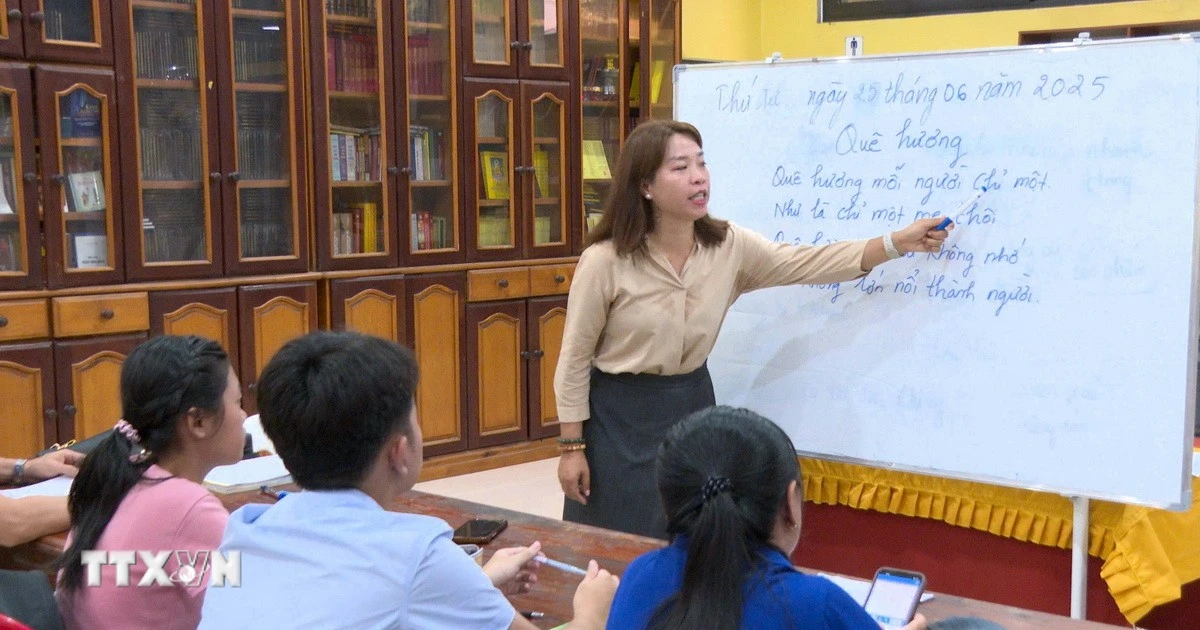 Thứ Tư ngày 25 tháng 06 năm 2025
Quê hương
Quê hương mỗi người chỉ một
Như là chỉ một mẹ thôi
Quê không nhớ
Không lớn nổi thành người.
TTXVN